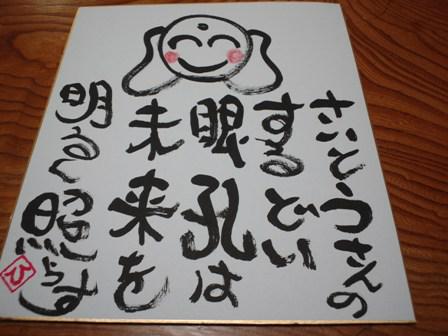 さいとうさんの
するどい
眼孔は
未来を
明るく照らす
ひ